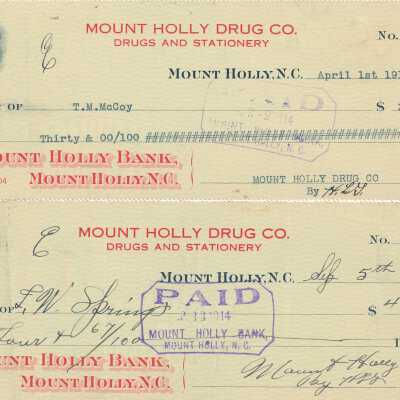 E
MOUNT HOLLY DRUG CO.
DRUGS AND STATIONERY
No.
MOUNT HOLLY, N.C. April 1st 191
OF T.M.McCoy $
PAID
2 1914
MOUNT HOLLY BANK,
MOUNT HOLLY, N. C.
Thirty & 00/100 ####################
OUNT HOLLY BANK,
MOUNT HOLLY, N.C.
MOUNT HOLLY DRUG CO
By
E
MOUNT HOLLY DRUG CO.
DRUGS AND STATIONERY
No.
MOUNT HOLLY, N.C. 5th
OF W. Springs $ 4
PAID
1914
MOUNT HOLLY BANK,
MOUNT HOLLY, N. C.
Four & 67/100
OUNT HOLLY BANK,
MOUNT HOLLY, N.C.
Mount Holly